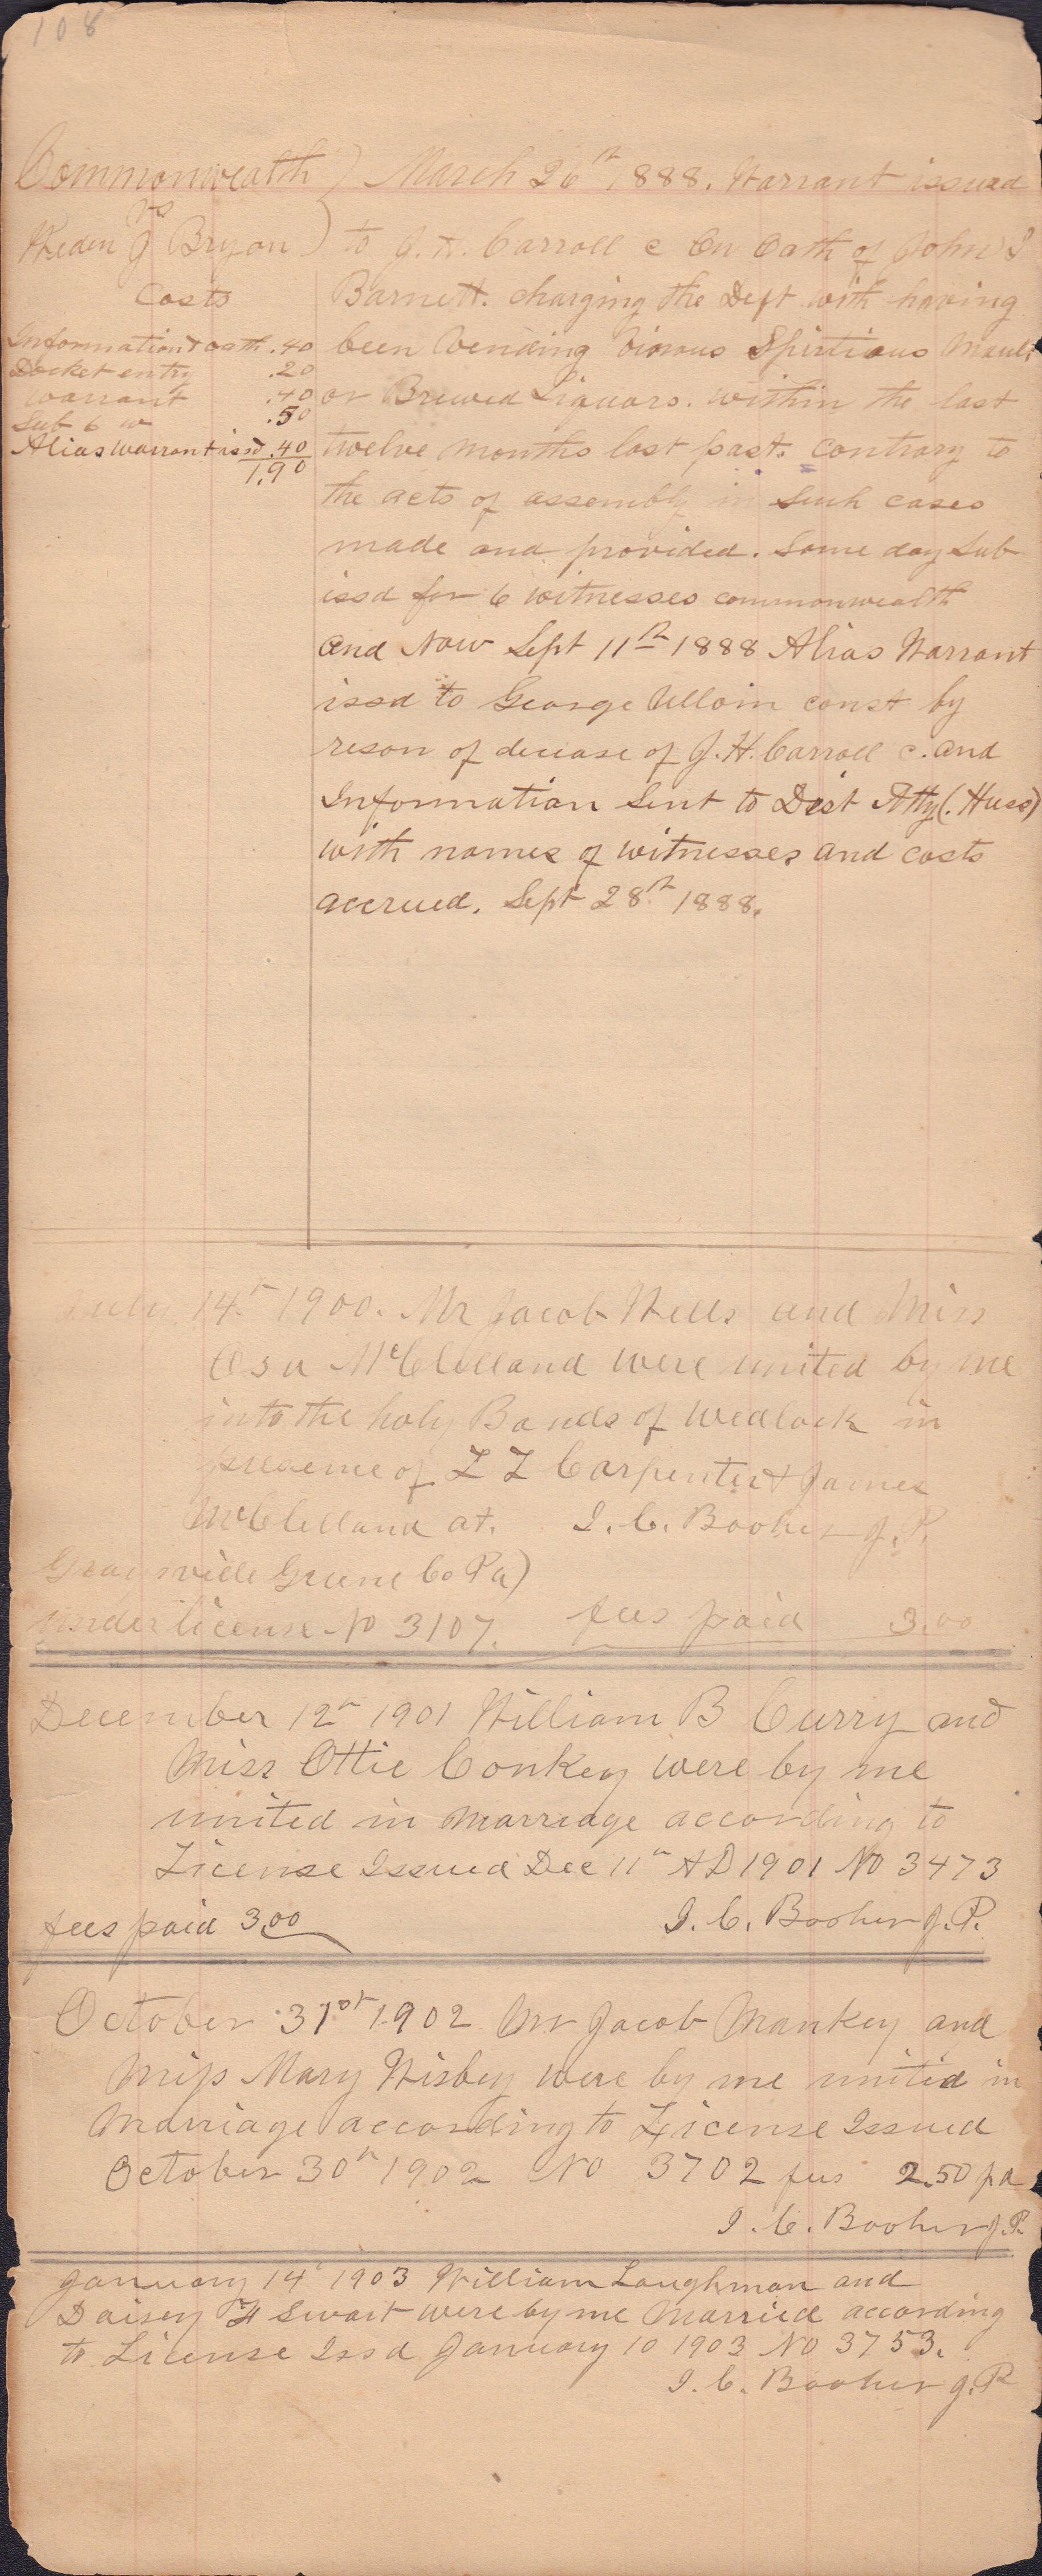 108
Commonwealth
vs
J Bryan
Costs
Information & oath .40
Docket entry .20
Warrant .40
Sub 6 w .50
Alias warrant issd .40
1.90
March 26th 1888. Warrant issued
to J. H. Carroll c On Oath of John I
Barnett. charging the Deft with having
been vending vinous Spirtious Mault
or Brewed Liquors. within the last
twelve months last past. contrary to
the acts of assembly in such cases
made and provided. Same day Sub
issd for 6 witnesses commonwealth
and Now Sept 11th 1888 Alias Warrant
issd to George Ullom const by
reson of decease of J. H. Carroll c. and
Information Sent to Dist Atty (. Huss)
with names of witnesses and costs
accrued. Sept 28th 1888.
July 14th 1900. Mr Jacob Wells and Miss
McClelland were united by me
into the holy Bands of wedlock in
presence of L L Carpenter & James
McClelland at. I. C. Booher J. P.
Graysville Greene Co Pa)
under license No 3107. fees paid 3.00
December 12th 1901 William B Curry and
Miss Ottie Conkey were by me
united in marriage according to
License Issued Dec 11th AD 1901 No 3473
fees paid 3.00 I. C. Booher J. P.
October 31st 1902 Mr Jacob Mankey and
Miss Mary Wisbey were by me united in
Marriage according to License Issued
October 30th 1902 No 3702 fees 2.50 pd
I. C. Booher J. P.
January 14th 1903 William Laughman and
Daisey H Swart were by me Married according
to License Issd January 10 1903 No 3753.
I. C. Booher J. P